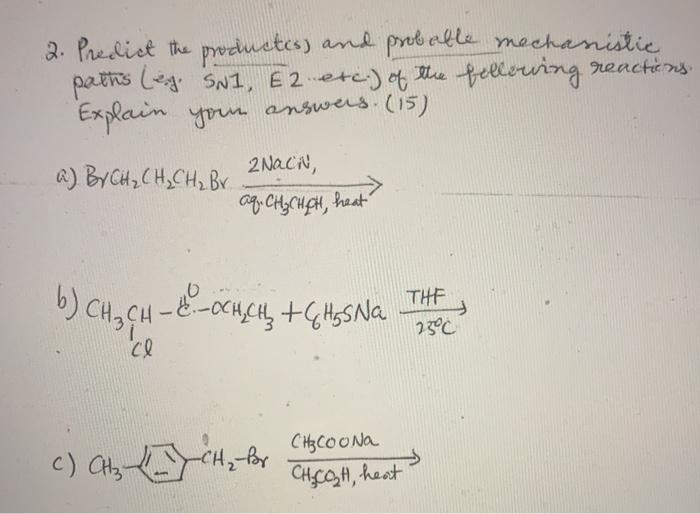 2. Predict the product(s) and probable mechanistic
paths (eg. SN1, E2..etc.) of the following reactions.
Explain your answers. (15)
a) BrCH₂CH₂CH₂Br 2NaCN,
aq. CH₃CH₂OH, heat
b) CH₃CH-C-OCH₂CH₃ + C₆H₅SNa THF
O
Cl
23°C
c) CH₃ CH₂-Br CH₃COONa
CH₃CO₂H, heat